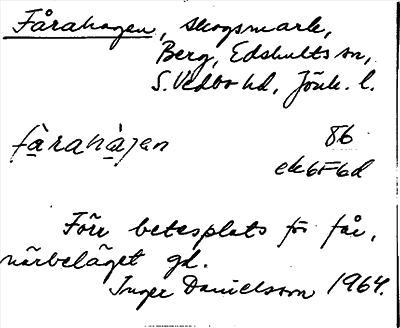 Fårahagen, skogsmark,
Berg, Edshults sn,
S. Vedbo hd, Jönk. l.
fàrahàgen 86
ek6F6d
Förr betesplats för får,
närbeläget gd.
Inger Danielsson 1964.